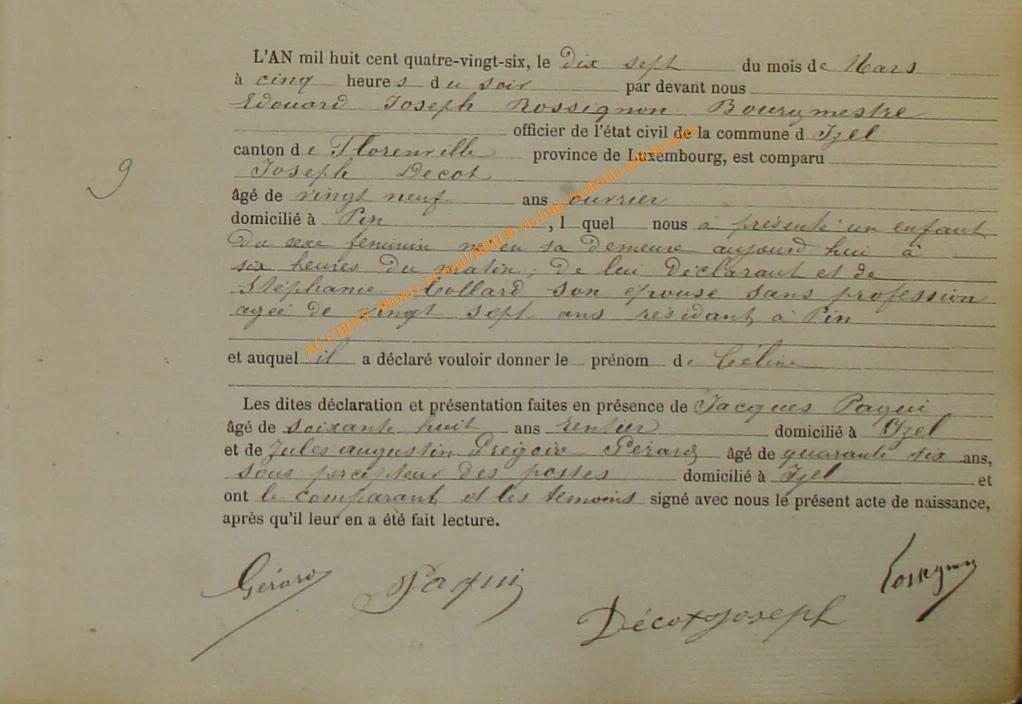 L'AN mil huit cent quatre-vingt-six, le dix sept du mois de Mars
à cinq heures du soir par devant nous
Edouard Joseph Rossignon Bourgmestre
officier de l'état civil de la commune d Izel
canton de Florenville province de Luxembourg, est comparu
Joseph Decot
9
âgé de vingt neuf ans ouvrier
domicilié à Pin, l quel nous a présenté un enfant
du sexe féminin né en sa demeure aujourd hui à
six heures du matin, de lui déclarant et de
Stéphanie Collard son épouse sans profession
agée de vingt sept ans résidant à Pin
et auquel il a déclaré vouloir donner le prénom de Céline
Les dites déclaration et présentation faites en présence de Jacques Paqui
âgé de soixante huit ans rentier domicilié à Izel
et de Jules augustin Grégoire Gérard âgé de quarante six ans,
sous percepteur des postes domicilié à Izel et
ont le comparant et les témoins signé avec nous le présent acte de naissance,
après qu'il leur en a été fait lecture.
Gérard Paqui Décot Joseph Rossignon